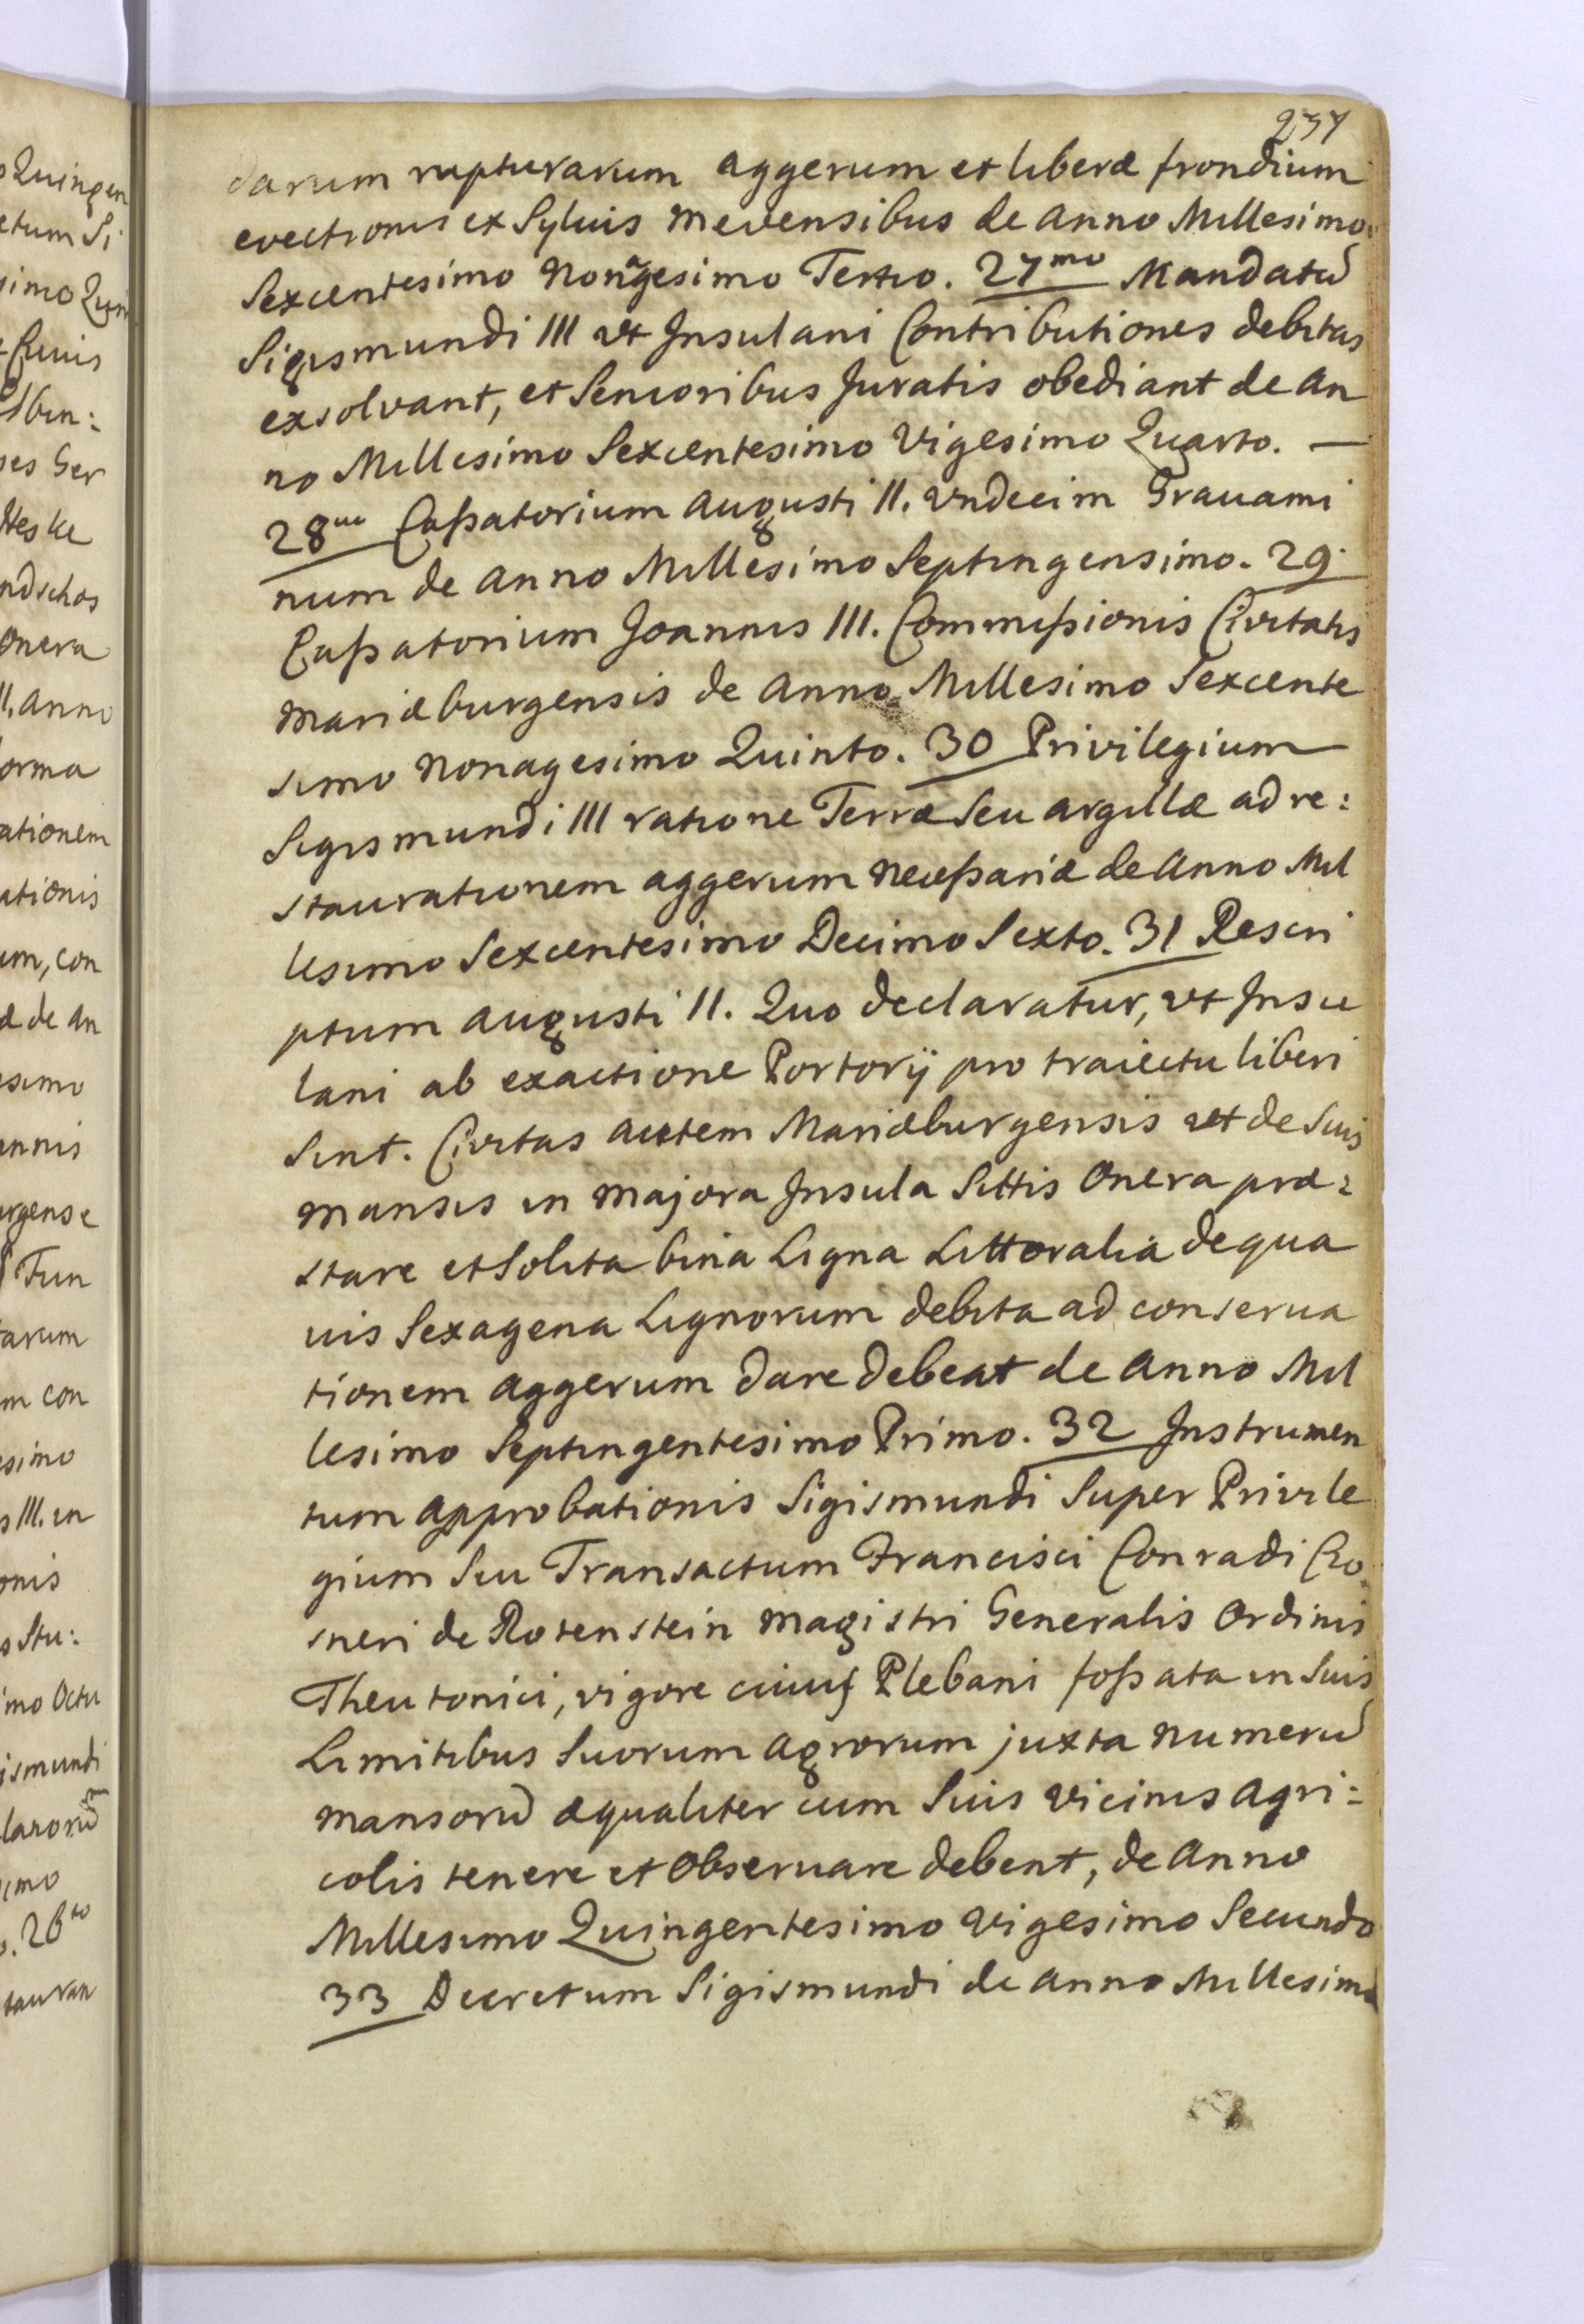 237
darum rupturarum aggerum et liberæ frondium
evectionis ex Syluis Mevensibus de Anno Millesimo
Sexcentesimo Nonagesimo Tertio. 27mo Mandatū
Sigismundi III vt Insulani Contributiones debitas
exsolvant, et Senioribus Juratis obediant de An
no Millesimo Sexcentesimo Vigesimo Quarto. —
28uo Caßatorium Augusti II. Vndecim Grauami
num de Anno Millesimo Septingensimo. 29.
Caßatorium Joannis III. Commißionis Civitatis
Mariæburgensis de Anno Millesimo Sexcente
simo Nonagesimo Quinto. 30 Privilegium
Sigismundi III ratione Terræ Seu argillæ ad re:
staurationem aggerum neceßariæ de Anno Mil
lesimo Sexcentesimo Decimo Sexto. 31 Rescri
ptum Augusti II. Quo declaratur, vt Insu
lani ab exactione Portorij pro traiectu liberi
Sint. Civitas autem Mariæburgensis vt de Suis
mansis in Majora Insula Sittis Onera præ:
stare et Solita bina Ligna Littoralia de qua
uis Sexagena Lignorum debita ad conserua
tionem aggerum dare debeat de Anno Mil
lesimo Septingentesimo Primo. 32 Instrumen
tum Approbationis Sigismundi Super Privile
gium Seu Transactum Francisci Conradi Cro
sneri de Rotenstein Magistri Generalis Ordinis
Theutonici, vigore cuius Plebani foßata in Suis
Limitibus Suorum Agrorum juxta Numerū
Mansorū æqualiter cum Suis Vicinis Agri:
colis tenere et Obseruare debent, de Anno
Millesimo Quingentesimo Vigesimo Secundo
33 Decretum Sigismundi de Anno Millesimo